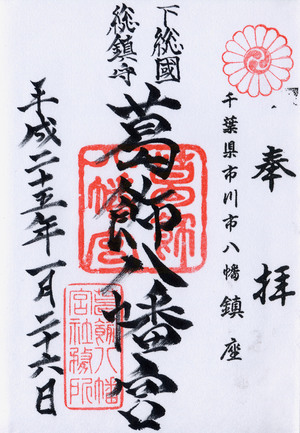 奉拝
千葉県市川市八幡鎮座
下総國
総鎮守
葛飾八幡宮
平成二十五年一月二十六日
葛飾八幡宮
葛飾八幡宮社務所